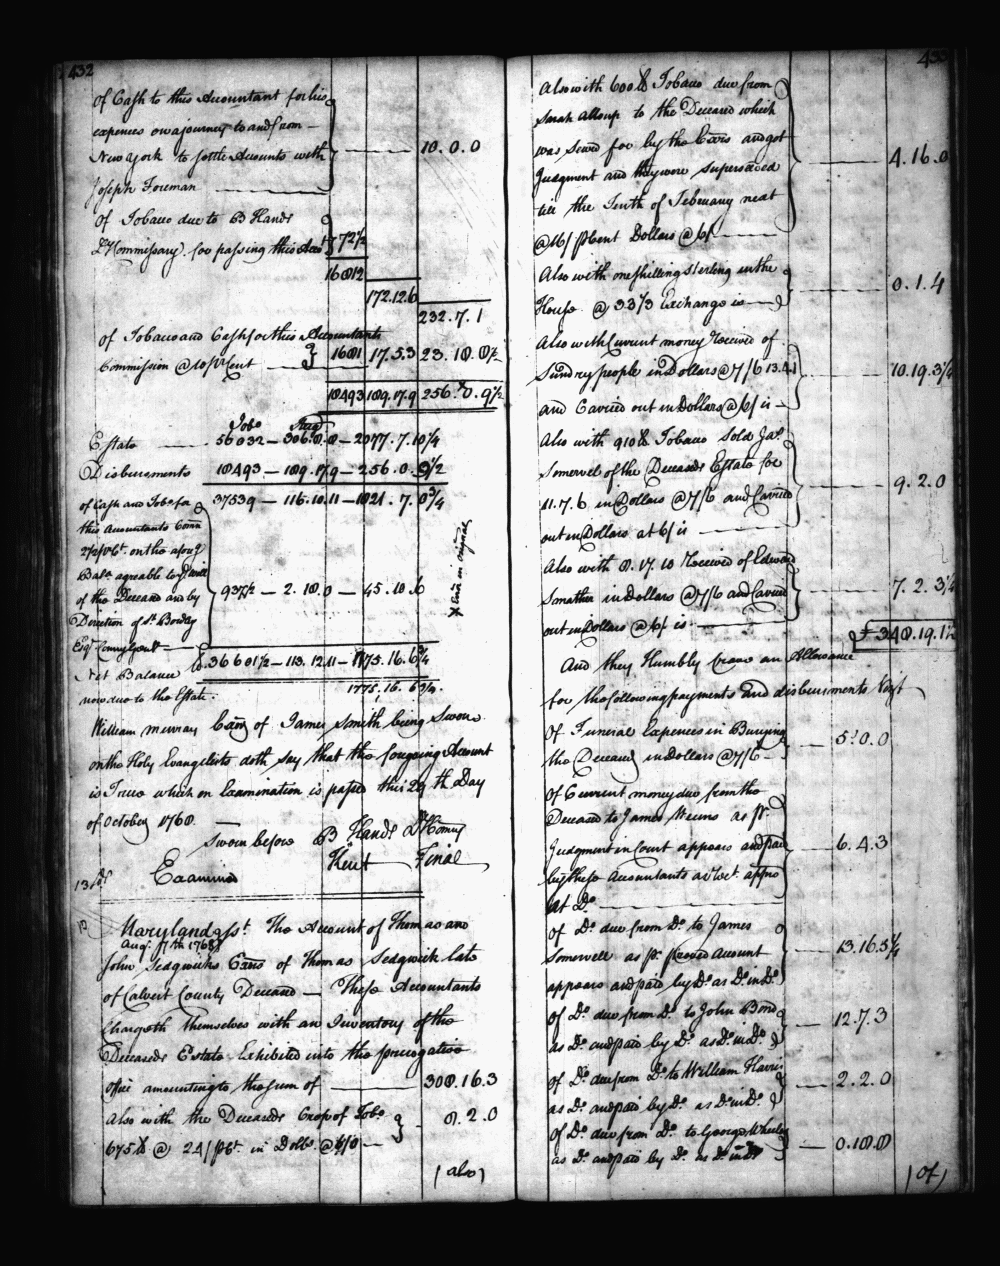 432
of Cash to this Accountant for his
expences on a journey to and from
New York to settle Accounts with 10.0.0
Joseph Foreman
of Tobacco due to B Hands
Dy Commissary for passing this Acct 72½
16812
172.12.6
232.7.1
of Tobacco and Cash for this Accountants
Commission @ 10 pr Cent 1681 17.5.3 23.18.8½
18493 189.17.9 256.0.9½
Tobo
Estate 56032 – 306.8.8 – 2077.7.10¼
Disbursments 18493 – 189.17.9 – 256.0.9½
37539 – 116.10.11 – 1821.7.0¾
of Cash and Tobo for
this Accountants Comn
2½ pr Ct. on the afosd
Balce agreable to ye will
of the Deceased and by 937½ – 2.18.0 – 45.10.6
Direction of
Esqr Comry Genl
Net Balance 36601½ – 113.12.11 – 1775.16.6¾
now due to the Estate. 1775.16.6¾
x error in original
William Murray Exr of James Smith being Sworn
on the Holy Evangelists doth say that the foregoing Account
is True which on Examination is passed this 29th Day
of October 1768.
Sworn before B Hands Dy Comry
Kent Final
Examined
Maryland sst. The Account of Thomas and
Augt 17th 1768
John Sedgwicks Exrs of Thomas Sedgwick late
of Calvert County Deceased — These Accountants
Chargeth themselves with an Inventory of the
Deceaseds Estate Exhibited into the prerogative
office amounting to the sum of 308.16.3
Also with the Deceaseds Crop of Tobo
675 lb @ 24/ pCt. in Dolls. @ 6/ 8.2.0
(also)
433
Also with 600 lb Tobacco due from
Sarah Allsup to the Deceased which
was Sewed for by the Exrs and got
Judgment and they were Superseded 4.16.0
till the Tenth of February next
@ 16/ pCent Dollars @ 6/
Also with one shilling Sterling in the
House @ 33⅓ Exchange is 0.1.4
Also with Current money Received of
Sundry people in Dollars @ 7/6 13.4.1 10.19.3¼
and Carried out in Dollars @ 6/ is
Also with 910 lb Tobacco Sold Jas.
Somervel of the Deceaseds Estate for
11.7.6 in Dollars @ 7/6 and Carried 9.2.0
out in Dollars at 6/ is
Also with 8.17.10 Received of Edward
Smather in Dollars @ 7/6 and Carried 7.2.3¼
out in Dollars @ 6/ is
£348.19.1½
And they Humbly crave an Allowance
for the following payments and disbursments Vizt
Of Funeral Expences in Burying
the Deceased in Dollars @ 7/6 5.0.0
Of Current money due from the
Deceased to James Weems as pr.
Judgment in Court appears and paid 6.4.3
by these Accountants as Rect. appro
at Do
Of Do due from Do to James
Somervell as pr. proved Account 13.16.5¼
appears and paid by Do as Do in Do
Of Do due from Do to John Bond
as Do and paid by Do as Do in Do 12.7.3
Of Do due from Do to William Harris
as Do and paid by Do as Do in Do 2.2.0
Of Do due from Do to George Wheeler
as Do and paid by Do as Do in Do 0.18.8
(of)